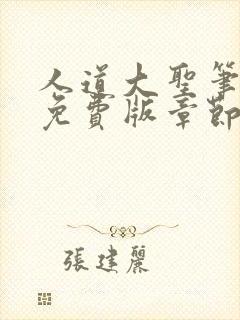 人道大聖筆
免費版章節
張建麗